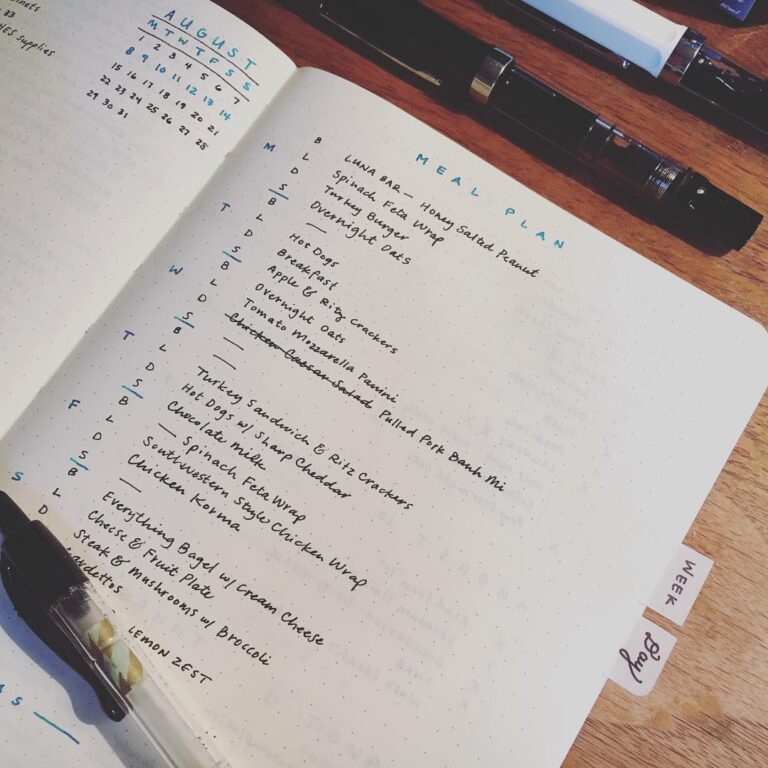 Supplies
AUGUST
M T W T F S S
1 2 3 4 5 6 7
8 9 10 11 12 13 14
15 16 17 18 19 20 21
22 23 24 25 26 27 28
29 30 31
MEAL PLAN
M B LUNA BAR — Honey Salted Peanut
L Spinach Feta Wrap
D Turkey Burger
S Overnight Oats
T B —
L Hot Dogs
D Breakfast
S Apple & Ritz Crackers
W B Overnight Oats
L Tomato Mozzarella Panini
D Chicken Caesar Salad Pulled Pork Banh Mi
S —
T B —
L Turkey Sandwich & Ritz Crackers
D Hot Dogs w/ Sharp Cheddar
S Chocolate Milk
F B — Spinach Feta Wrap
L Southwestern Style Chicken Wrap
D Chicken Korma
S —
S B Everything Bagel w/ Cream Cheese
L Cheese & Fruit Plate
D Steak & Mushrooms w/ Broccoli
ardettos
LEMON ZEST
WEEK
Day